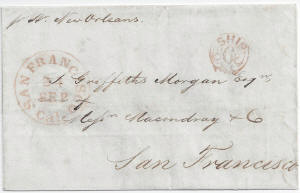 New Orleans.
SHIP
6
SAN FRANCISCO
SEP
Cal.
J. Griffiths Morgan Esqre
Messrs Macondray & Co
San Francisco